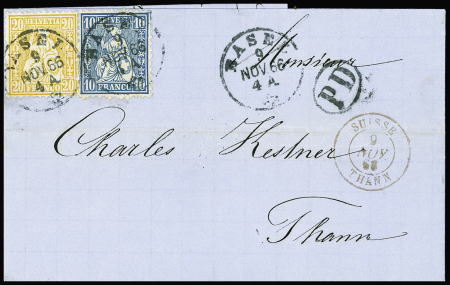 20 HELVETIA 20
20 FRANCO 20
10 HELVETIA 10
10 FRANCO 10
BASEL
9
NOV 66
4 A.
BASEL
9
NOV 66
4 A.
PD
Monsieur
SUISSE
9
NOV
66
THANN
Charles Kestner
Thann